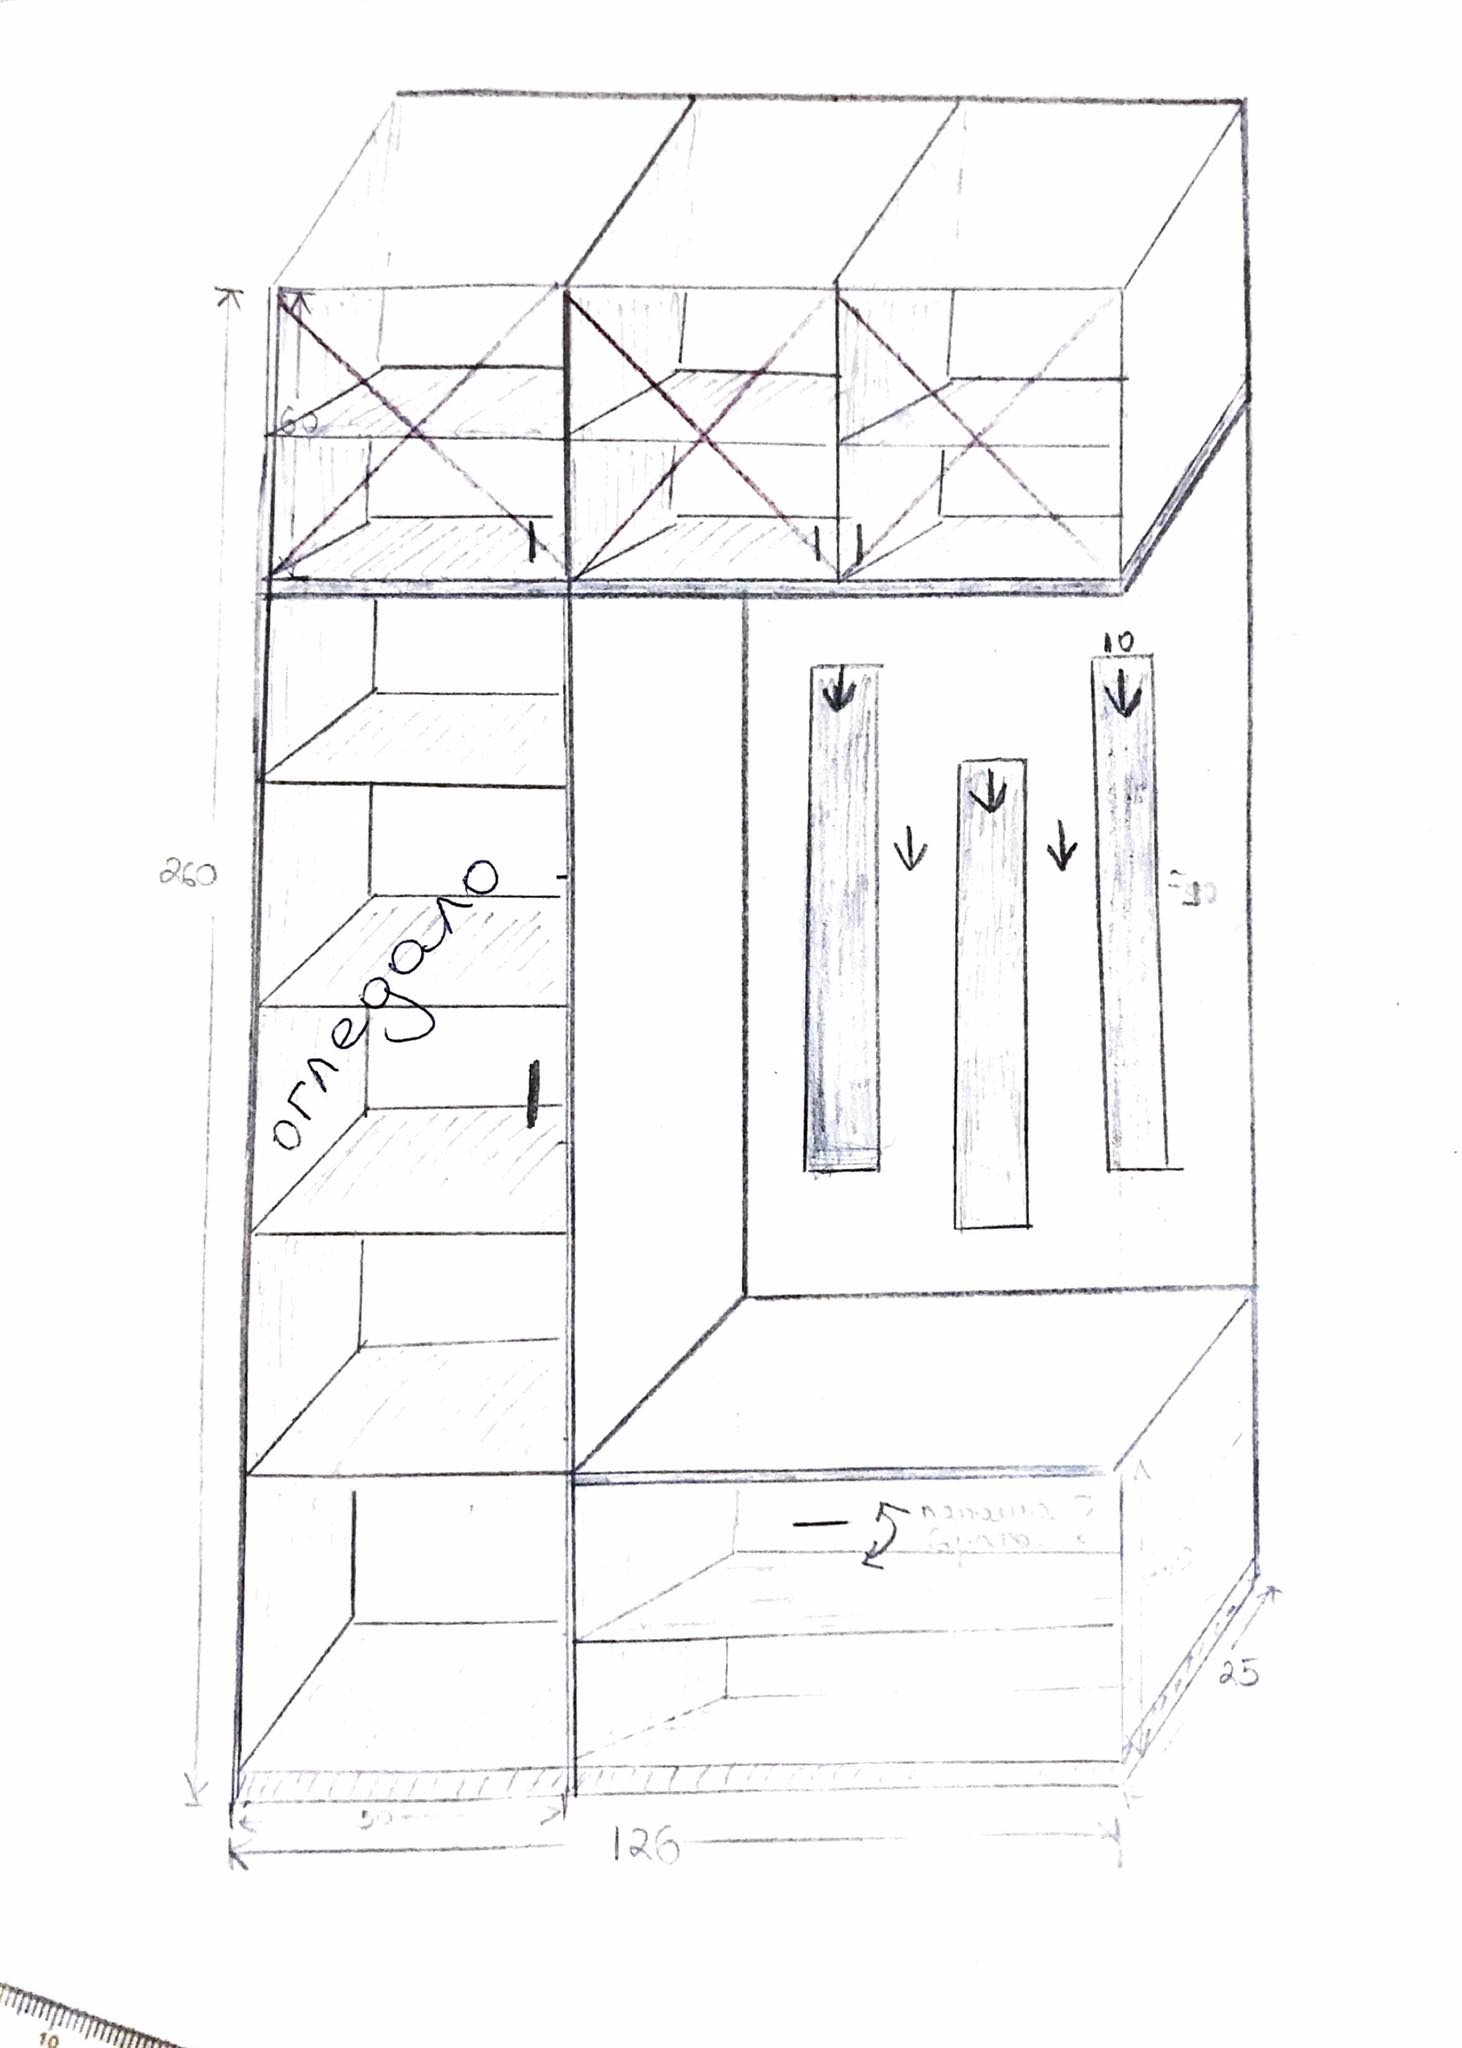 60
10
260
огледало
5
25
50
126
10